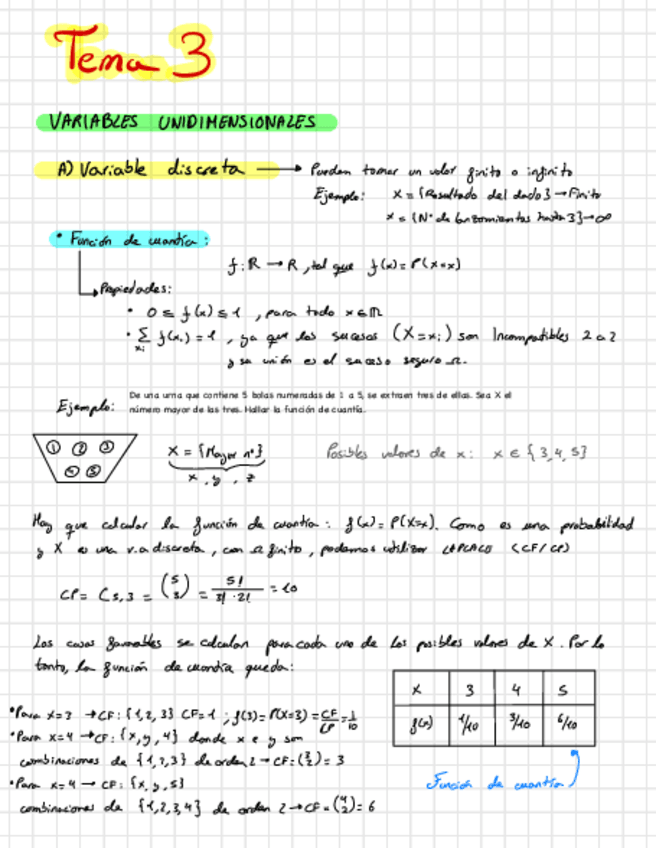 Tema 3
VARIABLES UNIDIMENSIONALES
A) Variable discreta → Pueden tomar un valor finito o infinito
Ejemplo: X = {Resultado del dado} → Finito
X = {Nº de lanzamientos hasta 3} → ∞
• Función de cuantía:
f: R → R, tal que f(x) = P(X=x)
Propiedades:
• 0 ≤ f(x) ≤ 1, para todo x ∈ R
• Σ f(xi) = 1, ya que los sucesos (X=xi) son Incompatibles 2 a 2
xi
y su unión es el suceso seguro Ω.
Ejemplo: De una urna que contiene 5 bolas numeradas de 1 a 5, se extraen tres de ellas. Sea X el
número mayor de las tres. Hallar la función de cuantía.
1 2 3
4 5
X = {Mayor nº}
x, y, z
Posibles valores de x: x ∈ {3,4,5}
Hay que calcular la función de cuantía: f(x) = P(X=x). Como es una probabilidad
y X es una v.a discreta, con Ω finito, podemos utilizar LAPLACE (CF/CP)
CP = C5,3 = (5 3) = 5!/3!·2! = 10
Los casos favorables se calculan para cada uno de los posibles valores de X. Por lo
tanto, la función de cuantía queda:
X 3 4 5
f(x) 1/10 3/10 6/10
Función de cuantía
• Para x=3 → CF: {1,2,3} CF=1; f(3) = P(X=3) = CF/CP = 1/10
• Para x=4 → CF: {x,y,4} donde x e y son
combinaciones de {1,2,3} de orden 2 → CF = (3 2) = 3
• Para x=4 → CF: {x,y,5}
combinaciones de {1,2,3,4} de orden 2 → CF = (4 2) = 6